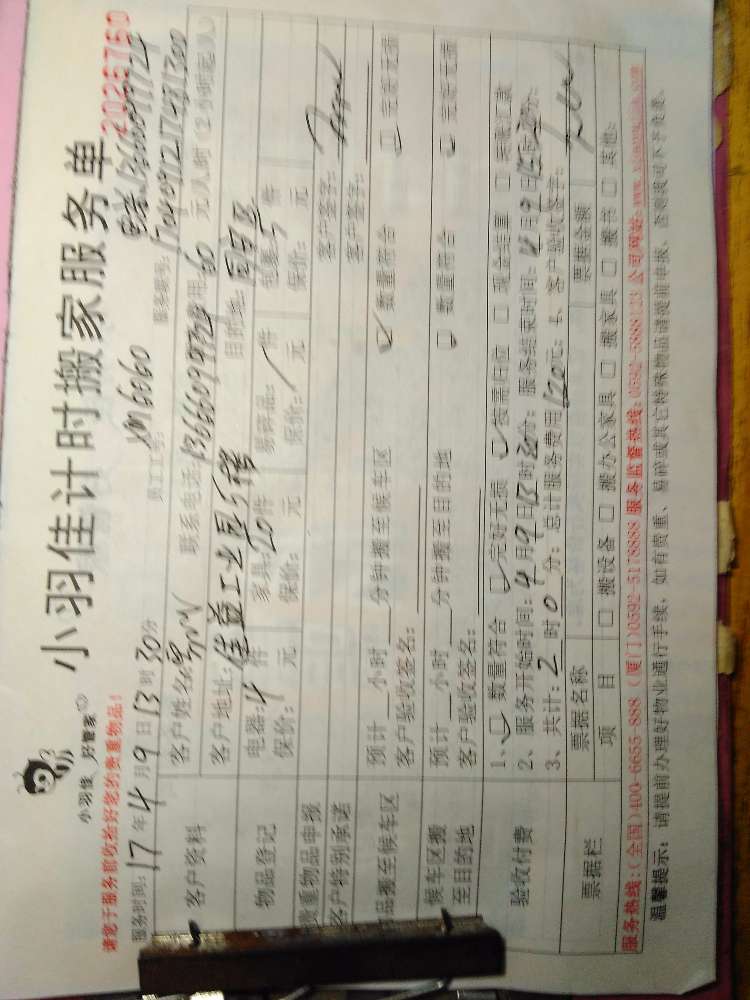 小羽佳 好管家
小羽佳计时搬家服务单
2026760
请您于服务前收拾好您的贵重物品!
服务时间:17年4月9日13时30分
员工工号: XM6060
服务账号: 17040912174871300
客户资料
客户姓名:
联系电话:
费用:60元/人时(2小时起)
客户地址:佳益工业园5楼
目的地:
物品登记
电器:4件
家具:20件
易碎品:/件
包裹:5件
保价:/元
保价: 元
保价:/元
保价: 元
贵重物品申报
客户签字:
客户特别承诺
客户签字:
物品搬至候车区
预计__小时__分钟搬至候车区
☑ 数量符合
□ 完好无损
客户验收签名:
候车区搬至目的地
预计__小时__分钟搬至目的地
□ 数量符合
☑ 完好无损
客户验收签名:
验收付费
1、☑ 数量符合 ☑ 完好无损 ☑ 按需归位 □ 现金结算 □ 转账汇款
2、服务开始时间:4月9日13时30分; 服务结束时间:4月9日15时30分;
3、共计:2时0分;总计服务费用120元; 4、客户验收签字:
票据栏
票据名称
票据金额
项 目
□ 搬设备 □ 搬办公家具 □ 搬家具 □ 搬书 □ 其他:
服务热线:(全国)400-6655-888 (厦门)0592-5178888 服务监督热线:0592-5888123 公司网站:www.xiaoyujia.com
温馨提示: 请提前办理好物业通行手续,如有贵重、易碎或其它特殊物品请提前申报,否则我司不予负责。